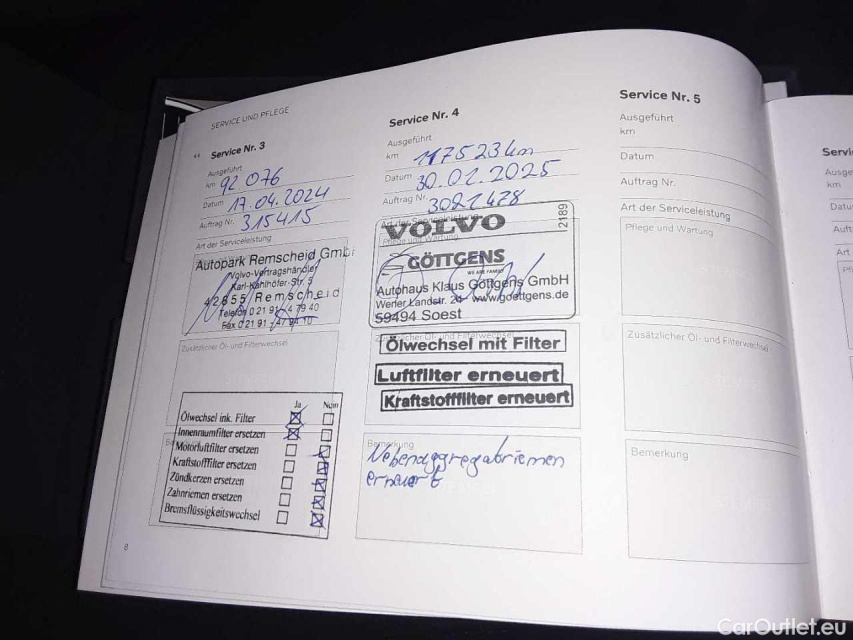 SERVICE UND PFLEGE
Service Nr. 3
Ausgeführt
km 92 076
Datum 17.04.2024
Auftrag Nr. 315415
Art der Serviceleistung
Autopark Remscheid GmbH
Volvo-Vertragshändler
Karl-Kahlhöfer-Str. 5
42855 Remscheid
Telefon 0 21 91 - 4 79 40
Fax 0 21 91 - 47 94 10
Zusätzlicher Öl- und Filterwechsel
Ja Nein
Ölwechsel ink. Filter
Innenraumfilter ersetzen
Motorluftfilter ersetzen
Kraftstofffilter ersetzen
Zündkerzen ersetzen
Zahnriemen ersetzen
Bremsflüssigkeitswechsel
8
Service Nr. 4
Ausgeführt
km 117523 km
Datum 30.01.2025
Auftrag Nr. 3021478
Art der Serviceleistung
Pflege und Wartung
VOLVO
2189
GÖTTGENS
WE ARE FAMILY
Autohaus Klaus Göttgens GmbH
Werler Landstr. 20 www.goettgens.de
59494 Soest
Zusätzlicher Öl- und Filterwechsel
Ölwechsel mit Filter
Luftfilter erneuert
Kraftstofffilter erneuert
Bemerkung
Nebenaggregatriemen
erneuert
Service Nr. 5
Ausgeführt
km
Datum
Auftrag Nr.
Art der Serviceleistung
Pflege und Wartung
Zusätzlicher Öl- und Filterwechsel
Bemerkung
Servi
Ausge
km
Datu
Auft
Art
CarOutlet.eu